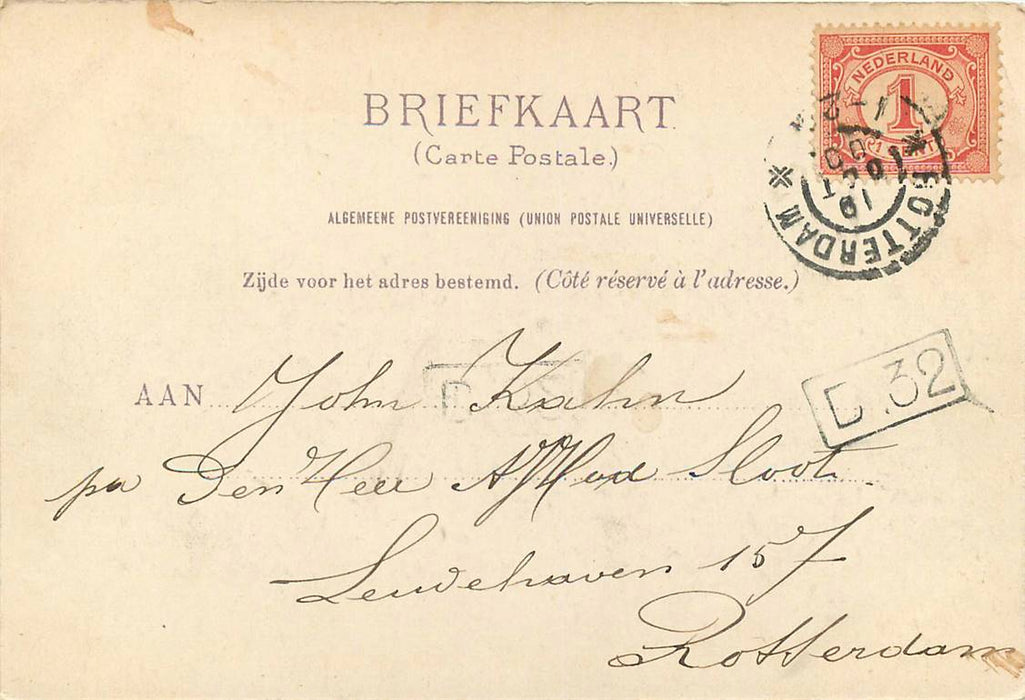 BRIEFKAART.
(Carte Postale.)
NEDERLAND
1
CENT
ROTTERDAM
ALGEMEENE POSTVEREENIGING (UNION POSTALE UNIVERSELLE)
Zijde voor het adres bestemd. (Côté réservé à l'adresse.)
AAN John Kahn
D.32
pa Den Heer Sloot.
Leuvehaven 157
Rotterdam